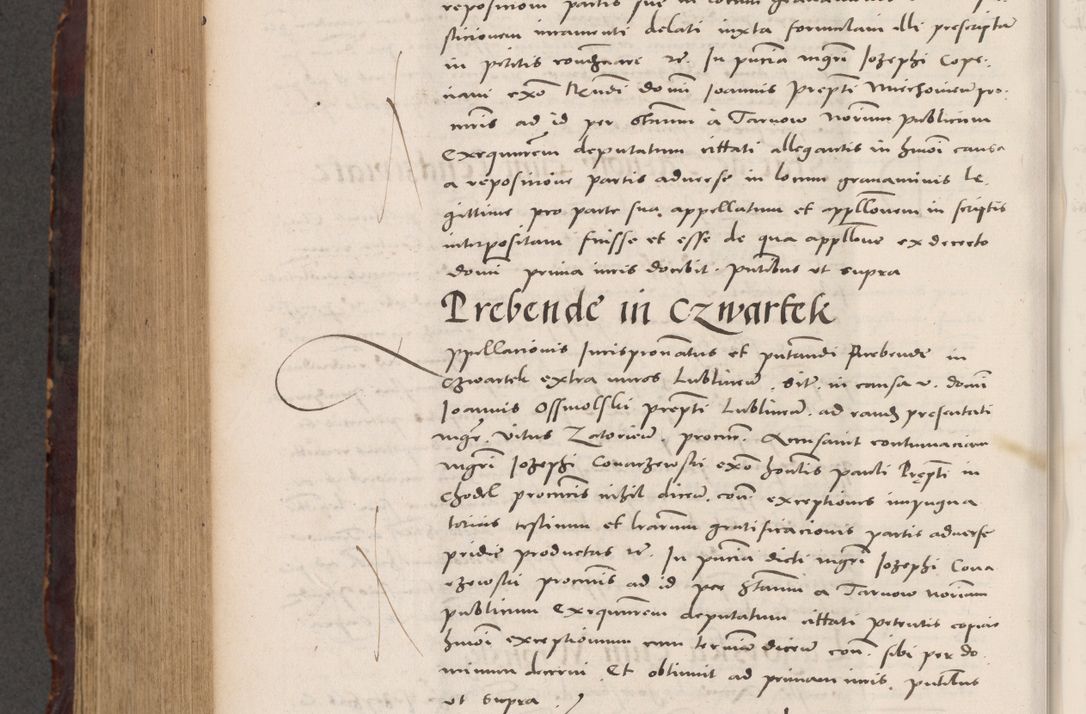 repositioni partis sue in locum
sticionem iuramenti delati iuxta formulam illi prescripta
in petitis condemnare etc. In pñcia mgri Jozephi Cope-
nani exõ Rñdi domi Joannis Prepti Miechovien pro-
curis ad id per Stanm a Tarnow Notarium publicum
Exequutorem deputatum cittati allegantis in hmoi causa
a repositione partis adverse in locum gravaminis le-
gittime pro parte sua appellatum et appllonem in scriptis
interpositam fuisse et esse de qua appllone ex decreto
domi prima iuris docebit. Pntibus ut supra
Prebende in Czwartek
Appellacionis Jurispronatus et pntandi Prebende in
Czwartek extra muros Lublinen. sit. in causa v. domi
Joannis Ossmolski prepti Lublinen. ad eand presentati
mgr. Vitus Zatorien. procur. Accusavit contumaciam
mgri Jozephi Conarzewski exõ honlis Pauli Prepti in
Chodel procuris nihil dicen. con exceptiones impugna
torias testium et lrarum gratificacionis partis adverse
pridie productas etc. In pñcia dicti mgri Jozephi Cona
rzewski procuris ad id per Stanm a Tarnow notarium
publicum Exequutorem deputatum cittati petentis copias
hmoi exceptionum cum termino dicen con. sibi per do
minum decerni. Et obtinuit ad primam iuris. pntibus
ut supra